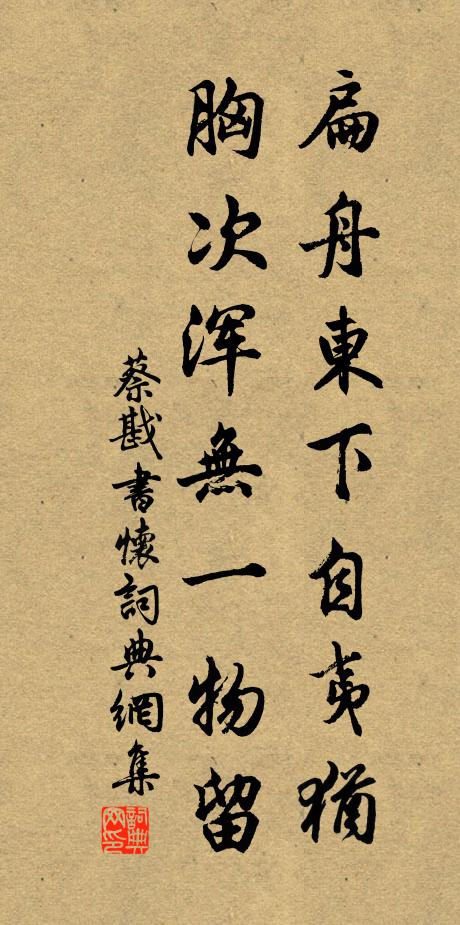 扁舟東下自夷猶
胸次浑無一物留
蔡戡書懷詞典網集
詞典网印